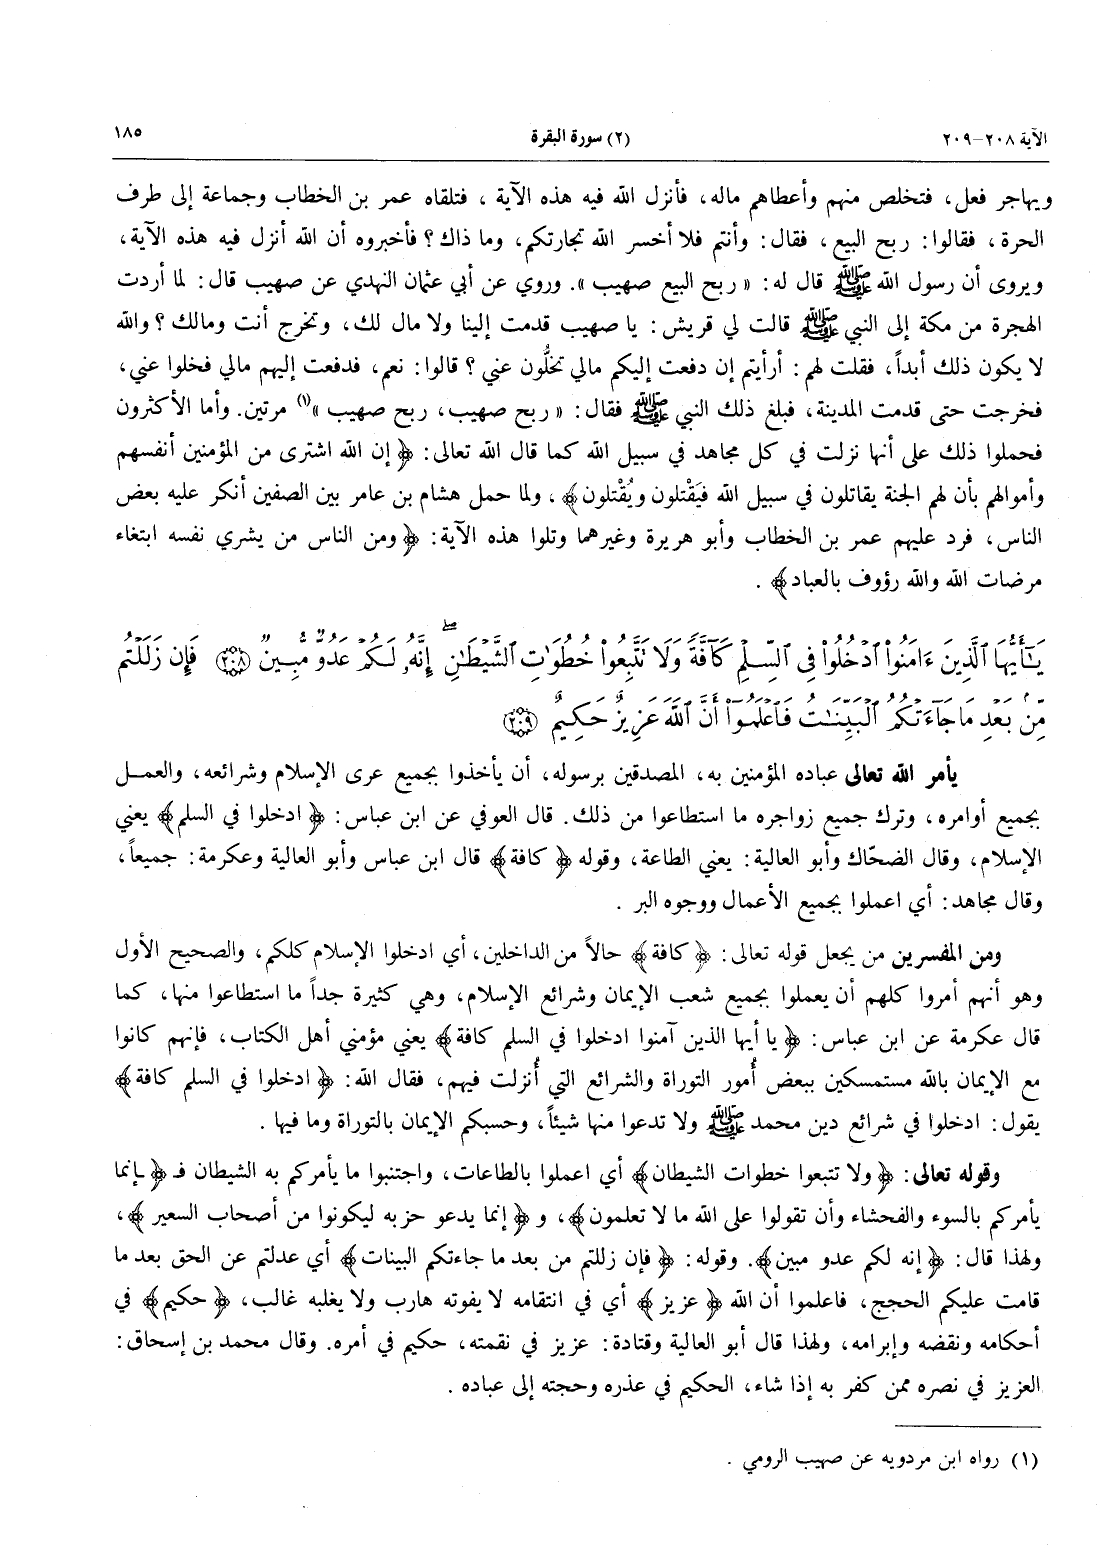 الآية ٢٠٨-٢٠٩ (٢) سورة البقرة ١٨٥
ويهاجر فعل، فتخلص منهم وأعطاهم ماله، فأنزل الله فيه هذه الآية ، فتلقاه عمر بن الخطاب وجماعة إلى طرف
الحرة ، فقالوا : ربح البيع ، فقال : وأنتم فلا أخسر الله تجارتكم، وما ذاك ؟ فأخبروه أن الله أنزل فيه هذه الآية،
ويروى أن رسول الله ﷺ قال له : « ربح البيع صهيب ». وروي عن أبي عثمان النهدي عن صهيب قال : لما أردت
الهجرة من مكة إلى النبي ﷺ قالت لي قريش : يا صهيب قدمت إلينا ولا مال لك، وتخرج أنت ومالك ؟ والله
لا يكون ذلك أبداً، فقلت لهم : أرأيتم إن دفعت إليكم مالي تخلُّون عني ؟ قالوا : نعم، فدفعت إليهم مالي فخلوا عني،
فخرجت حتى قدمت المدينة، فبلغ ذلك النبي ﷺ فقال : « ربح صهيب، ربح صهيب »(١) مرتين. وأما الأكثرون
فحملوا ذلك على أنها نزلت في كل مجاهد في سبيل الله كما قال الله تعالى : ﴿ إن الله اشترى من المؤمنين أنفسهم
وأموالهم بأن لهم الجنة يقاتلون في سبيل الله فيَقْتلون ويُقْتلون﴾ ، ولما حمل هشام بن عامر بين الصفين أنكر عليه بعض
الناس، فرد عليهم عمر بن الخطاب وأبو هريرة وغيرهما وتلوا هذه الآية : ﴿ ومن الناس من يشري نفسه ابتغاء
مرضات الله والله رؤوف بالعباد﴾ .
يَـٰٓأَيُّهَا ٱلَّذِينَ ءَامَنُوا۟ ٱدْخُلُوا۟ فِى ٱلسِّلْمِ كَآفَّةً وَلَا تَتَّبِعُوا۟ خُطُوَٰتِ ٱلشَّيْطَـٰنِ ۖ إِنَّهُۥ لَكُمْ عَدُوٌّ مُّبِينٌ ﴿٢٠٨﴾ فَإِن زَلَلْتُم
مِّنۢ بَعْدِ مَا جَآءَتْكُمُ ٱلْبَيِّنَـٰتُ فَٱعْلَمُوٓا۟ أَنَّ ٱللَّهَ عَزِيزٌ حَكِيمٌ ﴿٢٠٩﴾
يأمر الله تعالى عباده المؤمنين به، المصدقين برسوله، أن يأخذوا بجميع عرى الإسلام وشرائعه، والعمل
بجميع أوامره، وترك جميع زواجره ما استطاعوا من ذلك. قال العوفي عن ابن عباس : ﴿ ادخلوا في السلم﴾ يعني
الإسلام، وقال الضحّاك وأبو العالية : يعني الطاعة، وقوله ﴿ كافة﴾ قال ابن عباس وأبو العالية وعكرمة : جميعاً،
وقال مجاهد : أي اعملوا بجميع الأعمال ووجوه البر .
ومن المفسرين من يجعل قوله تعالى : ﴿ كافة﴾ حالاً من الداخلين، أي ادخلوا الإسلام كلكم، والصحيح الأول
وهو أنهم أمروا كلهم أن يعملوا بجميع شعب الإيمان وشرائع الإسلام، وهي كثيرة جداً ما استطاعوا منها، كما
قال عكرمة عن ابن عباس : ﴿ يا أيها الذين آمنوا ادخلوا في السلم كافة﴾ يعني مؤمني أهل الكتاب، فإنهم كانوا
مع الإيمان بالله مستمسكين ببعض أُمور التوراة والشرائع التي أُنزلت فيهم، فقال الله : ﴿ ادخلوا في السلم كافة﴾
يقول : ادخلوا في شرائع دين محمد ﷺ ولا تدعوا منها شيئاً، وحسبكم الإيمان بالتوراة وما فيها .
وقوله تعالى : ﴿ ولا تتبعوا خطوات الشيطان﴾ أي اعملوا بالطاعات، واجتنبوا ما يأمركم به الشيطان فـ ﴿ إنما
يأمركم بالسوء والفحشاء وأن تقولوا على الله ما لا تعلمون﴾، و ﴿ إنما يدعو حزبه ليكونوا من أصحاب السعير ﴾،
ولهذا قال : ﴿ إنه لكم عدو مبين﴾. وقوله : ﴿ فإن زللتم من بعد ما جاءتكم البينات﴾ أي عدلتم عن الحق بعد ما
قامت عليكم الحجج، فاعلموا أن الله ﴿ عزيز ﴾ أي في انتقامه لا يفوته هارب ولا يغلبه غالب، ﴿ حكيم﴾ في
أحكامه ونقضه وإبرامه، ولهذا قال أبو العالية وقتادة : عزيز في نقمته، حكيم في أمره. وقال محمد بن إسحاق :
العزيز في نصره ممن كفر به إذا شاء، الحكيم في عذره وحجته إلى عباده .
(١) رواه ابن مردويه عن صهيب الرومي .